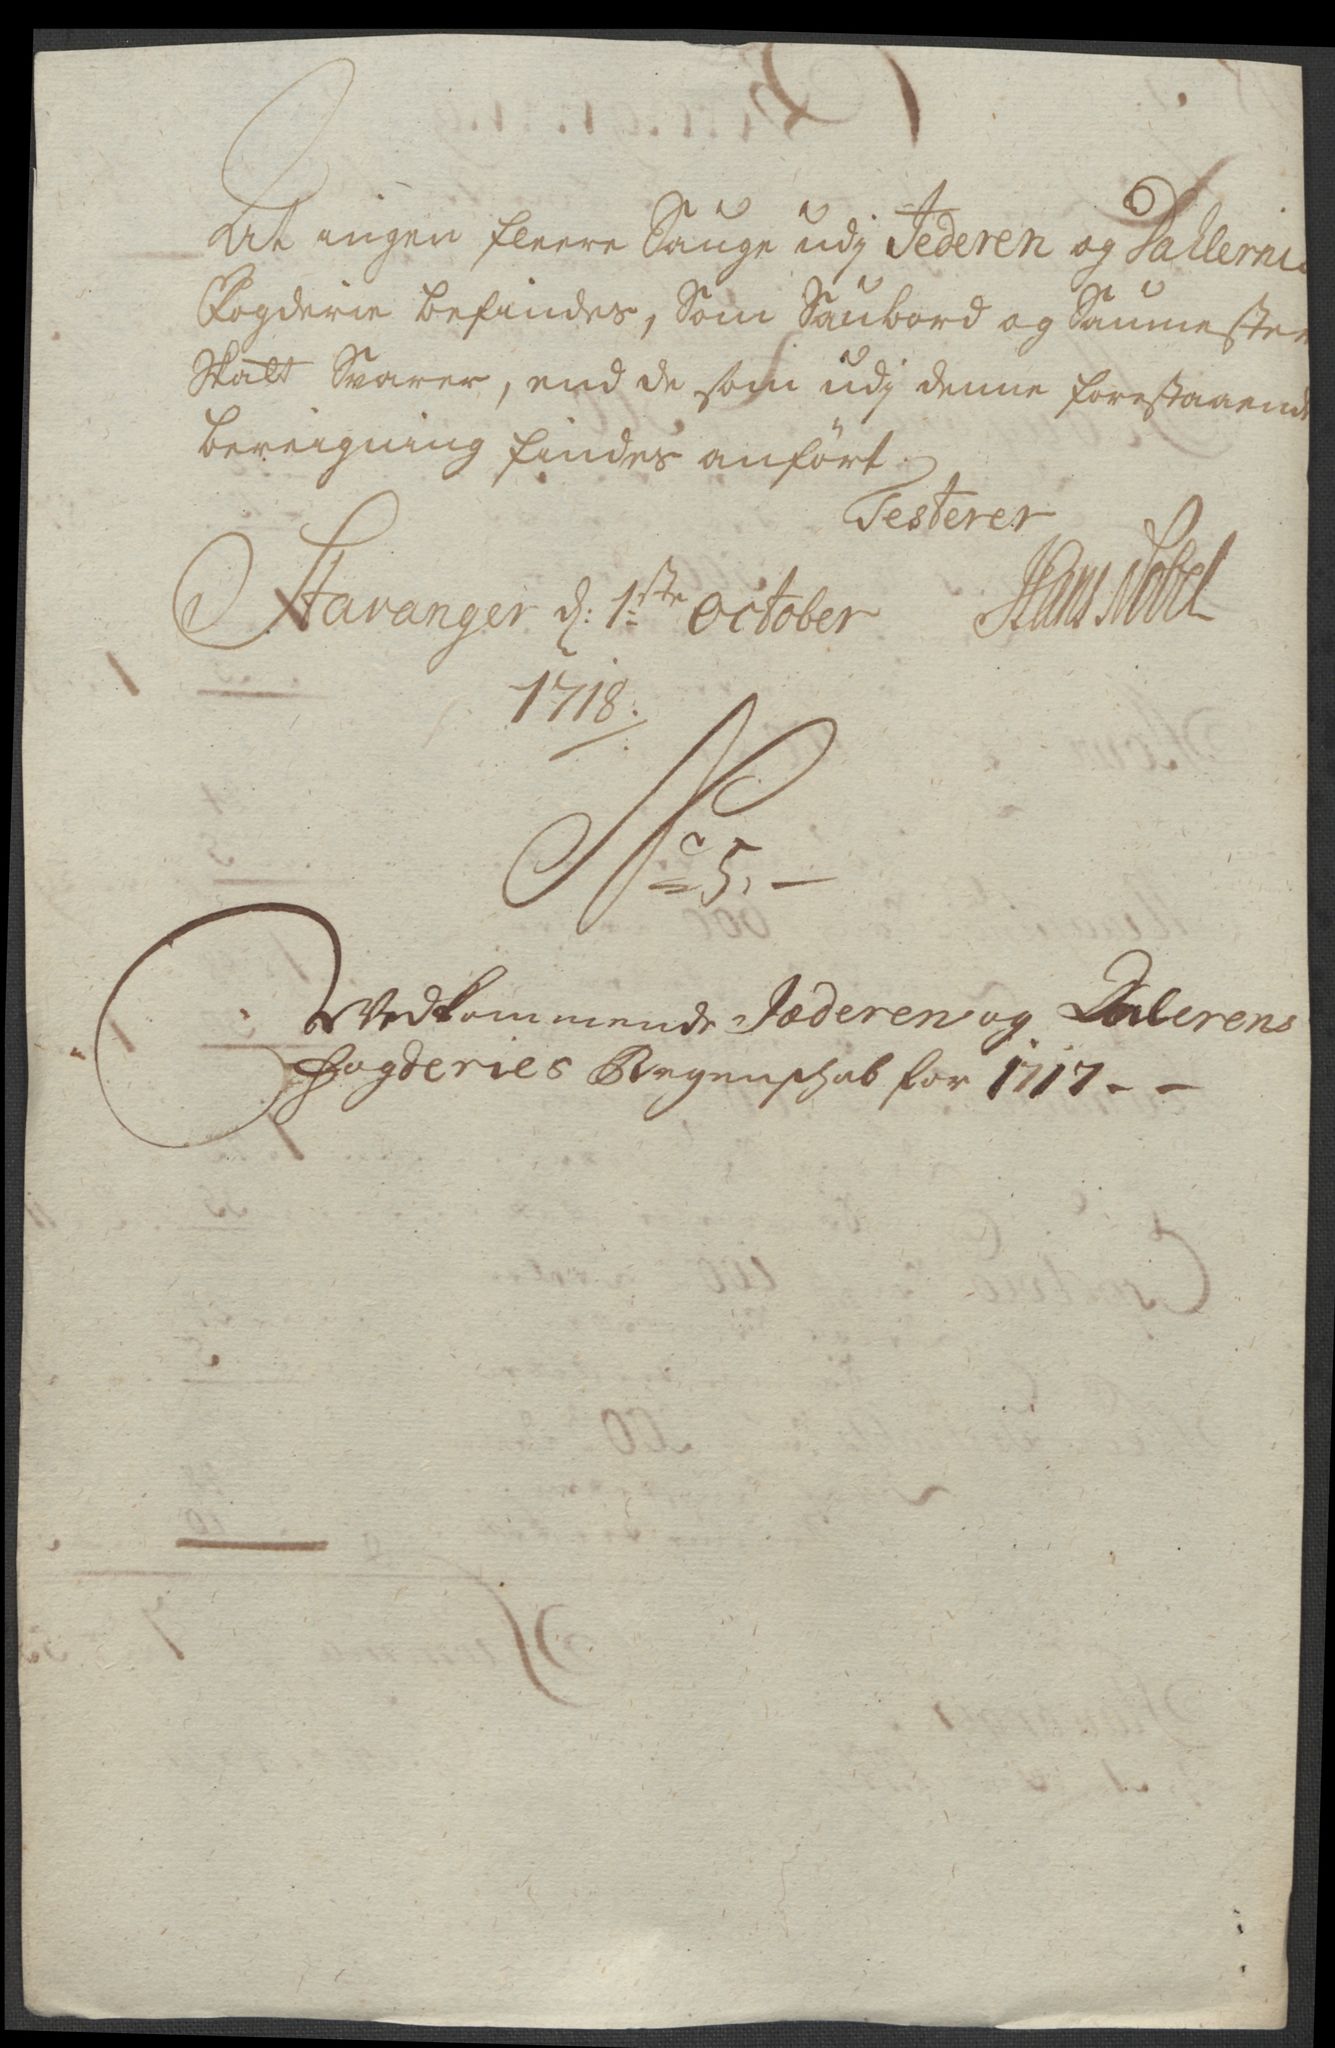 At ingen fleere Sauge udj Jederen og Dahlernis
Fogderie befindes, Som Saubord og Saumester
Skatt Svarer, end de som udj denne forestaaende
bereigning findes anført.
Testerer
Stavanger d: 1ste October Hans Nobel
1718.
No 5. —
Vedkommende Jæderen og Dalerens
fogderies Regenskab for 1717 - -